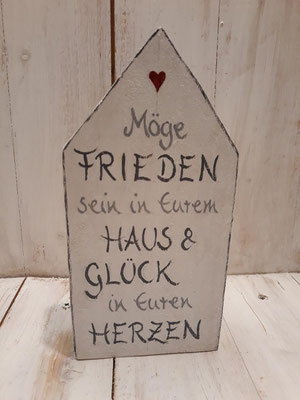 Möge
FRIEDEN
sein in Eurem
HAUS &
GLÜCK
in Euren
HERZEN